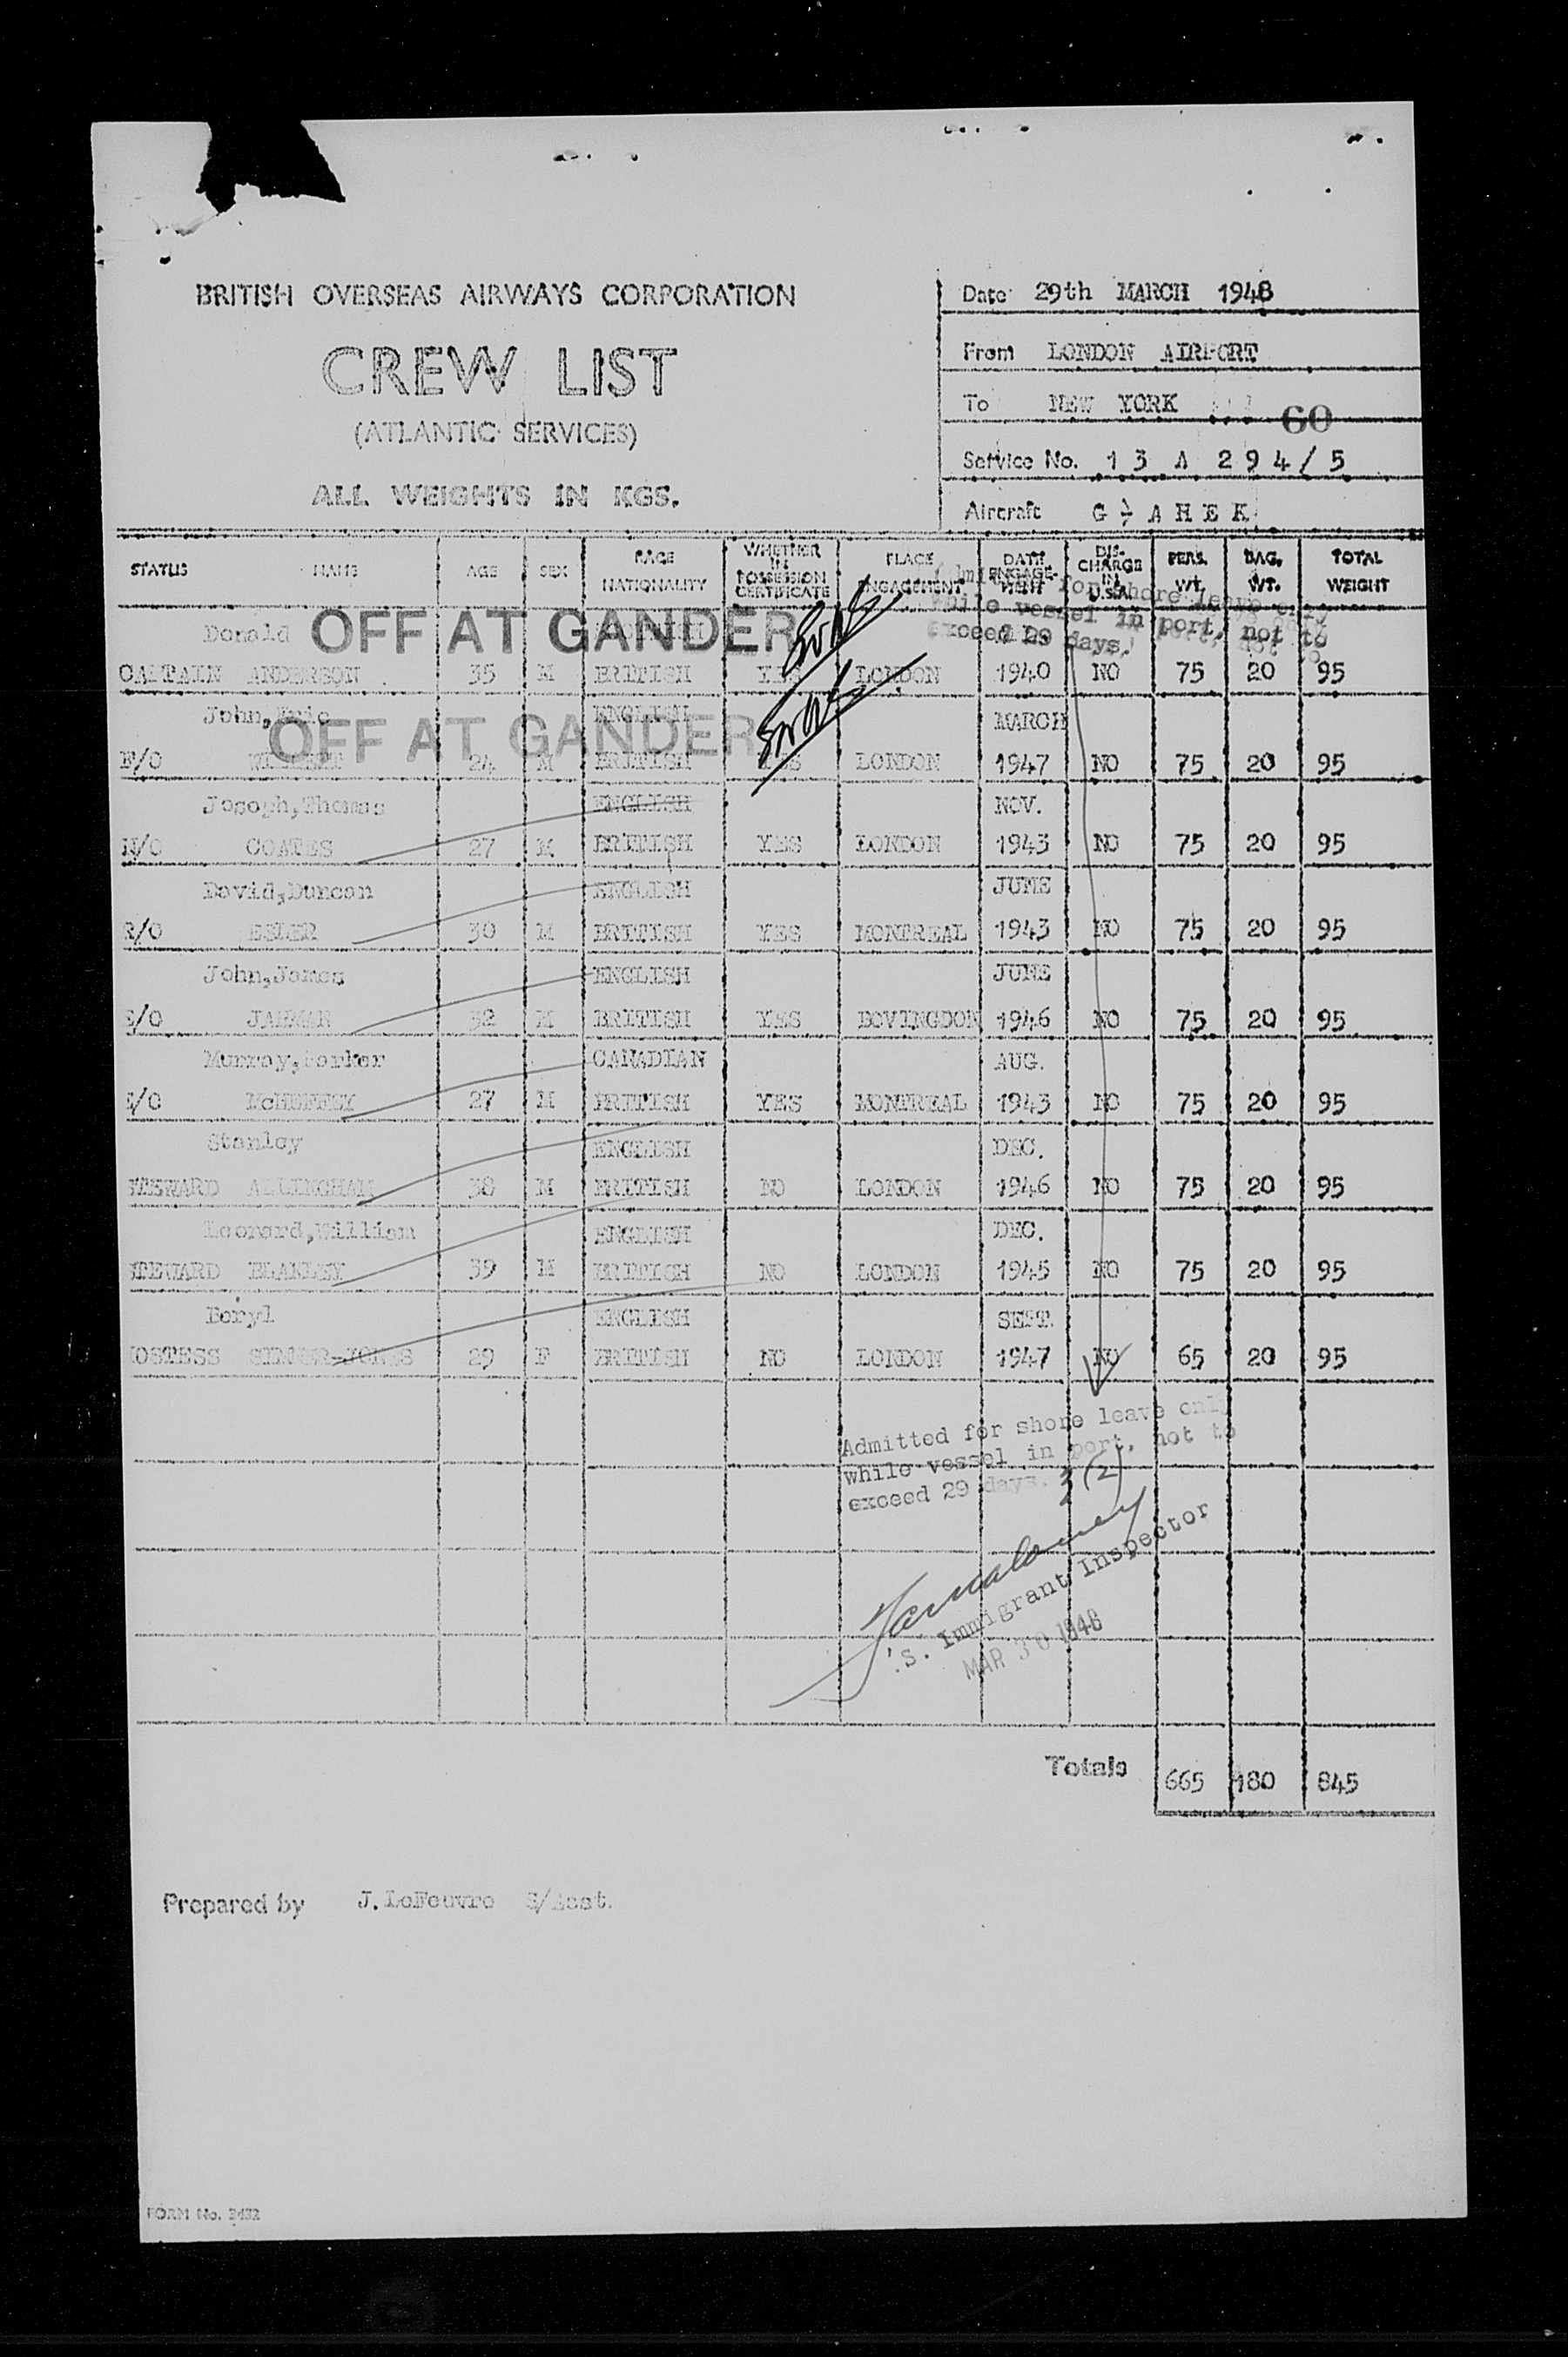 BRITISH OVERSEAS AIRWAYS CORPORATION
CREW LIST
(ATLANTIC SERVICES)
ALL WEIGHTS IN KGS.
Date 29th MARCH 1948
From LONDON AIRPORT
To NEW YORK
60
Service No. 13 A 294/5
Aircraft G - AHEK
STATUS NAME AGE SEX RACE NATIONALITY WHETHER IN POSSESSION CERTIFICATE PLACE ENGAGEMENT DATE ENGAGE-MENT DIS-CHARGE IN U.S.A. PERS. WT. BAG. WT. TOTAL WEIGHT
for shore leave
while vessel in port, not to
exceed 29 days.
Donald OFF AT GANDER
CAPTAIN ANDERSON 35 M BRITISH YES LONDON 1940 NO 75 20 95
John, Eric ENGLISH MARCH
OFF AT GANDER
F/O 24 M BRITISH YES LONDON 1947 NO 75 20 95
Joseph, Thomas ENGLISH NOV.
N/O COATES 27 M BRITISH YES LONDON 1943 NO 75 20 95
David, Duncan ENGLISH JUNE
R/O ESLER 30 M BRITISH YES MONTREAL 1943 NO 75 20 95
John, James ENGLISH JUNE
E/O JARMAN 32 M BRITISH YES BOVINGDON 1946 NO 75 20 95
Murray, Barker CANADIAN AUG.
E/O McHEFFEY 27 M BRITISH YES MONTREAL 1943 NO 75 20 95
Stanley ENGLISH DEC.
STEWARD ALLINGHAM 38 M BRITISH NO LONDON 1946 NO 75 20 95
Leonard, William ENGLISH DEC.
STEWARD BLAKLEY 39 M BRITISH NO LONDON 1945 NO 75 20 95
Beryl ENGLISH SEPT.
OSTESS 29 F BRITISH NO LONDON 1947 NO 65 20 95
Admitted for shore leave only
while vessel in port, not to
exceed 29 days. 3 (2)
.S. Immigrant Inspector
MAR 30 1948
Totals 665 180 845
Prepared by J. LeFeuvre S/Asst.
FORM No. 3432